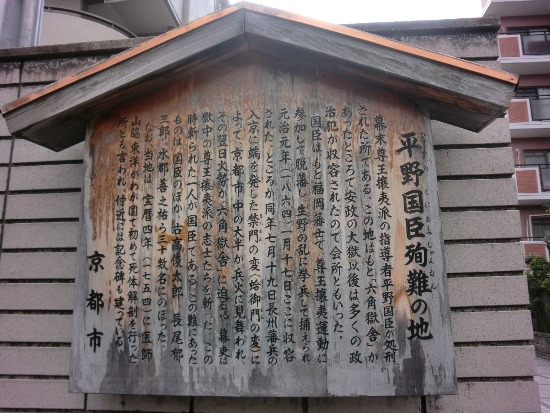 平野国臣殉難の地
ひらのくにおみじゅんなん
幕末尊王攘夷派の指導者平野国臣の処刑
された所である。この地はもと「六角獄舎」が
あったところで安政の大獄以後は多くの政
治犯が収容されたので会所ともいった。
国臣はもと福岡藩士で、尊王攘夷運動に
参加して脱藩し、生野の乱に挙兵して捕えられ
元治元年（一八六四）一月十七日ここに収容
された。ところが同年七月十九日長州藩兵の
入京に端を発した禁門の変（蛤御門の変）に
よって、京都市中の大半が兵火に見舞われ、
その翌日火勢が六角獄舎に迫るや、幕吏は
獄中の尊王攘夷派の志士たちを斬った。この
時斬られた一人が国臣である。この難にあった
ものは、国臣のほか、古高俊太郎、長尾郁
三郎、水郡善之祐ら三十数名にのぼった。
なお、当地は、宝暦四年（一七五四）に医師
山脇東洋がわが国で初めて死体解剖を行った
所とも言われ、付近には記念碑も建っている。
京都市